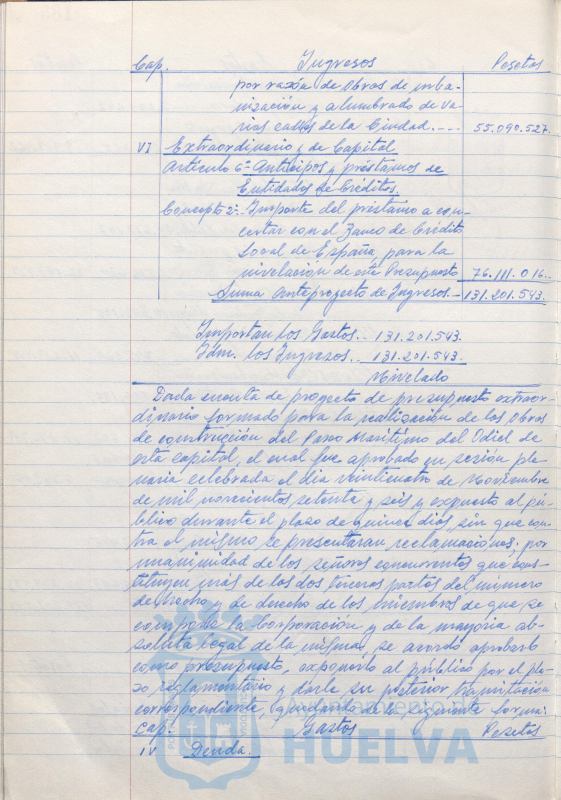 Cap. Ingresos Pesetas
por razón de obras de urba-
nización y alumbrado de va-
rias calles de la Ciudad.--- 55.090.527.
VI Extraordinario y de Capital
Artículo 6º Anticipos y préstamos de
Entidades de Créditos.
Concepto 2º- Importe del préstamo a con-
certar con el Banco de Crédito
Local de España para la
nivelación de este Presupuesto 76.111.016.-
Suma Anteproyecto de Ingresos.- 131.201.543.
Importan los Gastos.. 131.201.543.
Idm. los Ingresos.. 131.201.543.
Nivelado
Dada cuenta de proyecto de presupuesto extraor-
dinario formado para la realización de las obras
de construcción del Paseo Marítimo del Odiel de
esta capital, el cual fue aprobado en sesión ple-
naria celebrada el día veinticuatro de Noviembre
de mil novecientos setenta y seis y expuesto al pú-
blico durante el plazo de quince días, sin que con-
tra el mismo se presentaran reclamaciones; por
unanimidad de los señores concurrentes que cons-
tituyen más de las dos terceras partes del número
de hecho y de derecho de los miembros de que se
compone la Corporación y de la mayoría ab-
soluta legal de la misma, se acordó aprobarlo
como presupuesto, exponerlo al público por el pla-
zo reglamentario y darle su posterior tramitación
correspondiente, quedando de la siguiente forma:
Cap. Gastos Pesetas
IV Deuda.
HUELVA